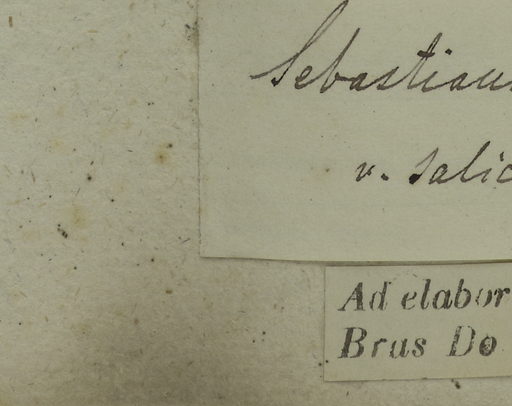 Sebastian
v. salic
Ad elabor
Bras Do